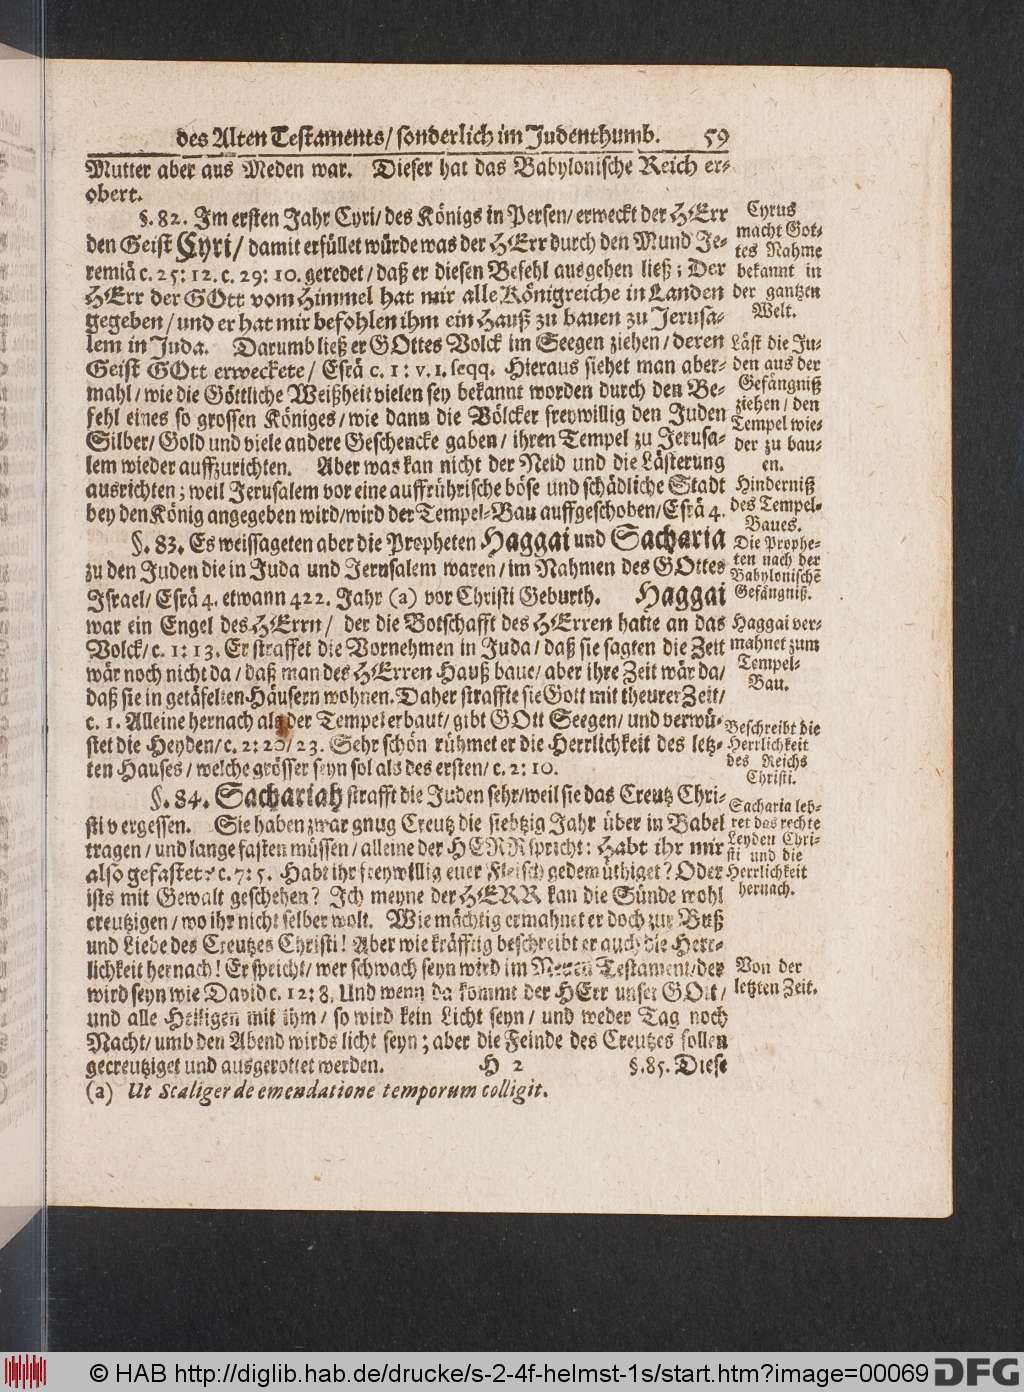 des Alten Testaments/ sonderlich im Judenthumb. 59
Mutter aber aus Meden war. Dieser hat das Babylonische Reich er-
obert.
§. 82. Im ersten Jahr Cyri/ des Königs in Persen/ erweckt der HErr
den Geist Cyri/ damit erfüllet würde was der HErr durch den Mund Je-
remiä c. 25: 12. c. 29: 10. geredet/ daß er diesen Befehl ausgehen ließ; Der
HErr der GOtt vom Himmel hat mir alle Königreiche in Landen
gegeben/ und er hat mir befohlen ihm ein Hauß zu bauen zu Jerusa-
lem in Juda. Darumb ließ er GOttes Volck im Seegen ziehen/ deren
Geist GOtt erweckete/ Esrä c. 1: v. 1. seqq. Hieraus siehet man aber-
mahl/ wie die Göttliche Weißheit vielen sey bekannt worden durch den Be-
fehl eines so grossen Königes/ wie dann die Völcker freywillig den Juden
Silber/ Gold und viele andere Geschencke gaben/ ihren Tempel zu Jerusa-
lem wieder auffzurichten. Aber was kan nicht der Neid und die Lästerung
ausrichten; weil Jerusalem vor eine auffrührische böse und schädliche Stadt
bey den König angegeben wird/ wird der Tempel-Bau auffgeschoben/ Esrä 4.
§. 83. Es weissageten aber die Propheten Haggai und Sacharia
zu den Juden die in Juda und Jerusalem waren/ im Nahmen des GOttes
Israel/ Esrä 4. etwann 422. Jahr (a) vor Christi Geburth. Haggai
war ein Engel des HErrn/ der die Botschafft des HErren hatte an das
Volck/ c. 1: 13. Er straffet die Vornehmen in Juda/ daß sie sagten die Zeit
wär noch nicht da/ daß man des HErren Hauß baue/ aber ihre Zeit wär da/
daß sie in getäfelten Häusern wohnen. Daher straffte sie Gott mit theurer Zeit/
c. 1. Alleine hernach als der Tempel erbaut/ gibt GOtt Seegen/ und verwü-
stet die Heyden/ c. 2: 20/ 23. Sehr schön rühmet er die Herrlichkeit des letz-
ten Hauses/ welche grösser seyn sol als des ersten/ c. 2: 10.
§. 84. Sachariah strafft die Juden sehr/ weil sie das Creutz Chri-
sti vergessen. Sie haben zwar gnug Creutz die siebtzig Jahr über in Babel
tragen/ und lange fasten müssen/ alleine der HERR spricht: Habt ihr mir
also gefastet? c. 7: 5. Habt ihr freywillig euer Fleisch gedemüthiget? Oder
ists mit Gewalt geschehen? Ich meyne der HERR kan die Sünde wohl
creutzigen/ wo ihr nicht selber wolt. Wie mächtig ermahnet er doch zur Buß
und Liebe des Creutzes Christi! Aber wie kräfftig beschreibt er auch die Herr-
lichkeit hernach! Er spricht/ wer schwach seyn wird im Neuen Testament/ der
wird seyn wie David c. 12: 8. Und wenn da kommt der HErr unser GOtt/
und alle Heiligen mit ihm/ so wird kein Licht seyn/ und weder Tag noch
Nacht/ umb den Abend wirds licht seyn; aber die Feinde des Creutzes sollen
gecreutziget und ausgerottet werden. H 2 §. 85. Diese
(a) Ut Scaliger de emendatione temporum colligit.
Cyrus
macht Got-
tes Nahme
bekannt in
der gantzen
Welt.
Läst die Ju-
den aus der
Gefängniß
ziehen/ den
Tempel wie-
der zu bau-
en.
Hinderniß
des Tempel-
Baues.
Die Prophe-
ten nach der
Babylonischē
Gefängniß.
Haggai ver-
mahnet zum
Tempel-
Bau.
Beschreibt die
Herrlichkeit
des Reichs
Christi.
Sacharia leh-
ret das rechte
Leyden Chri-
sti und die
Herrlichkeit
hernach.
Von der
letzten Zeit.
© HAB http://diglib.hab.de/drucke/s-2-4f-helmst-1s/start.htm?image=00069 DFG